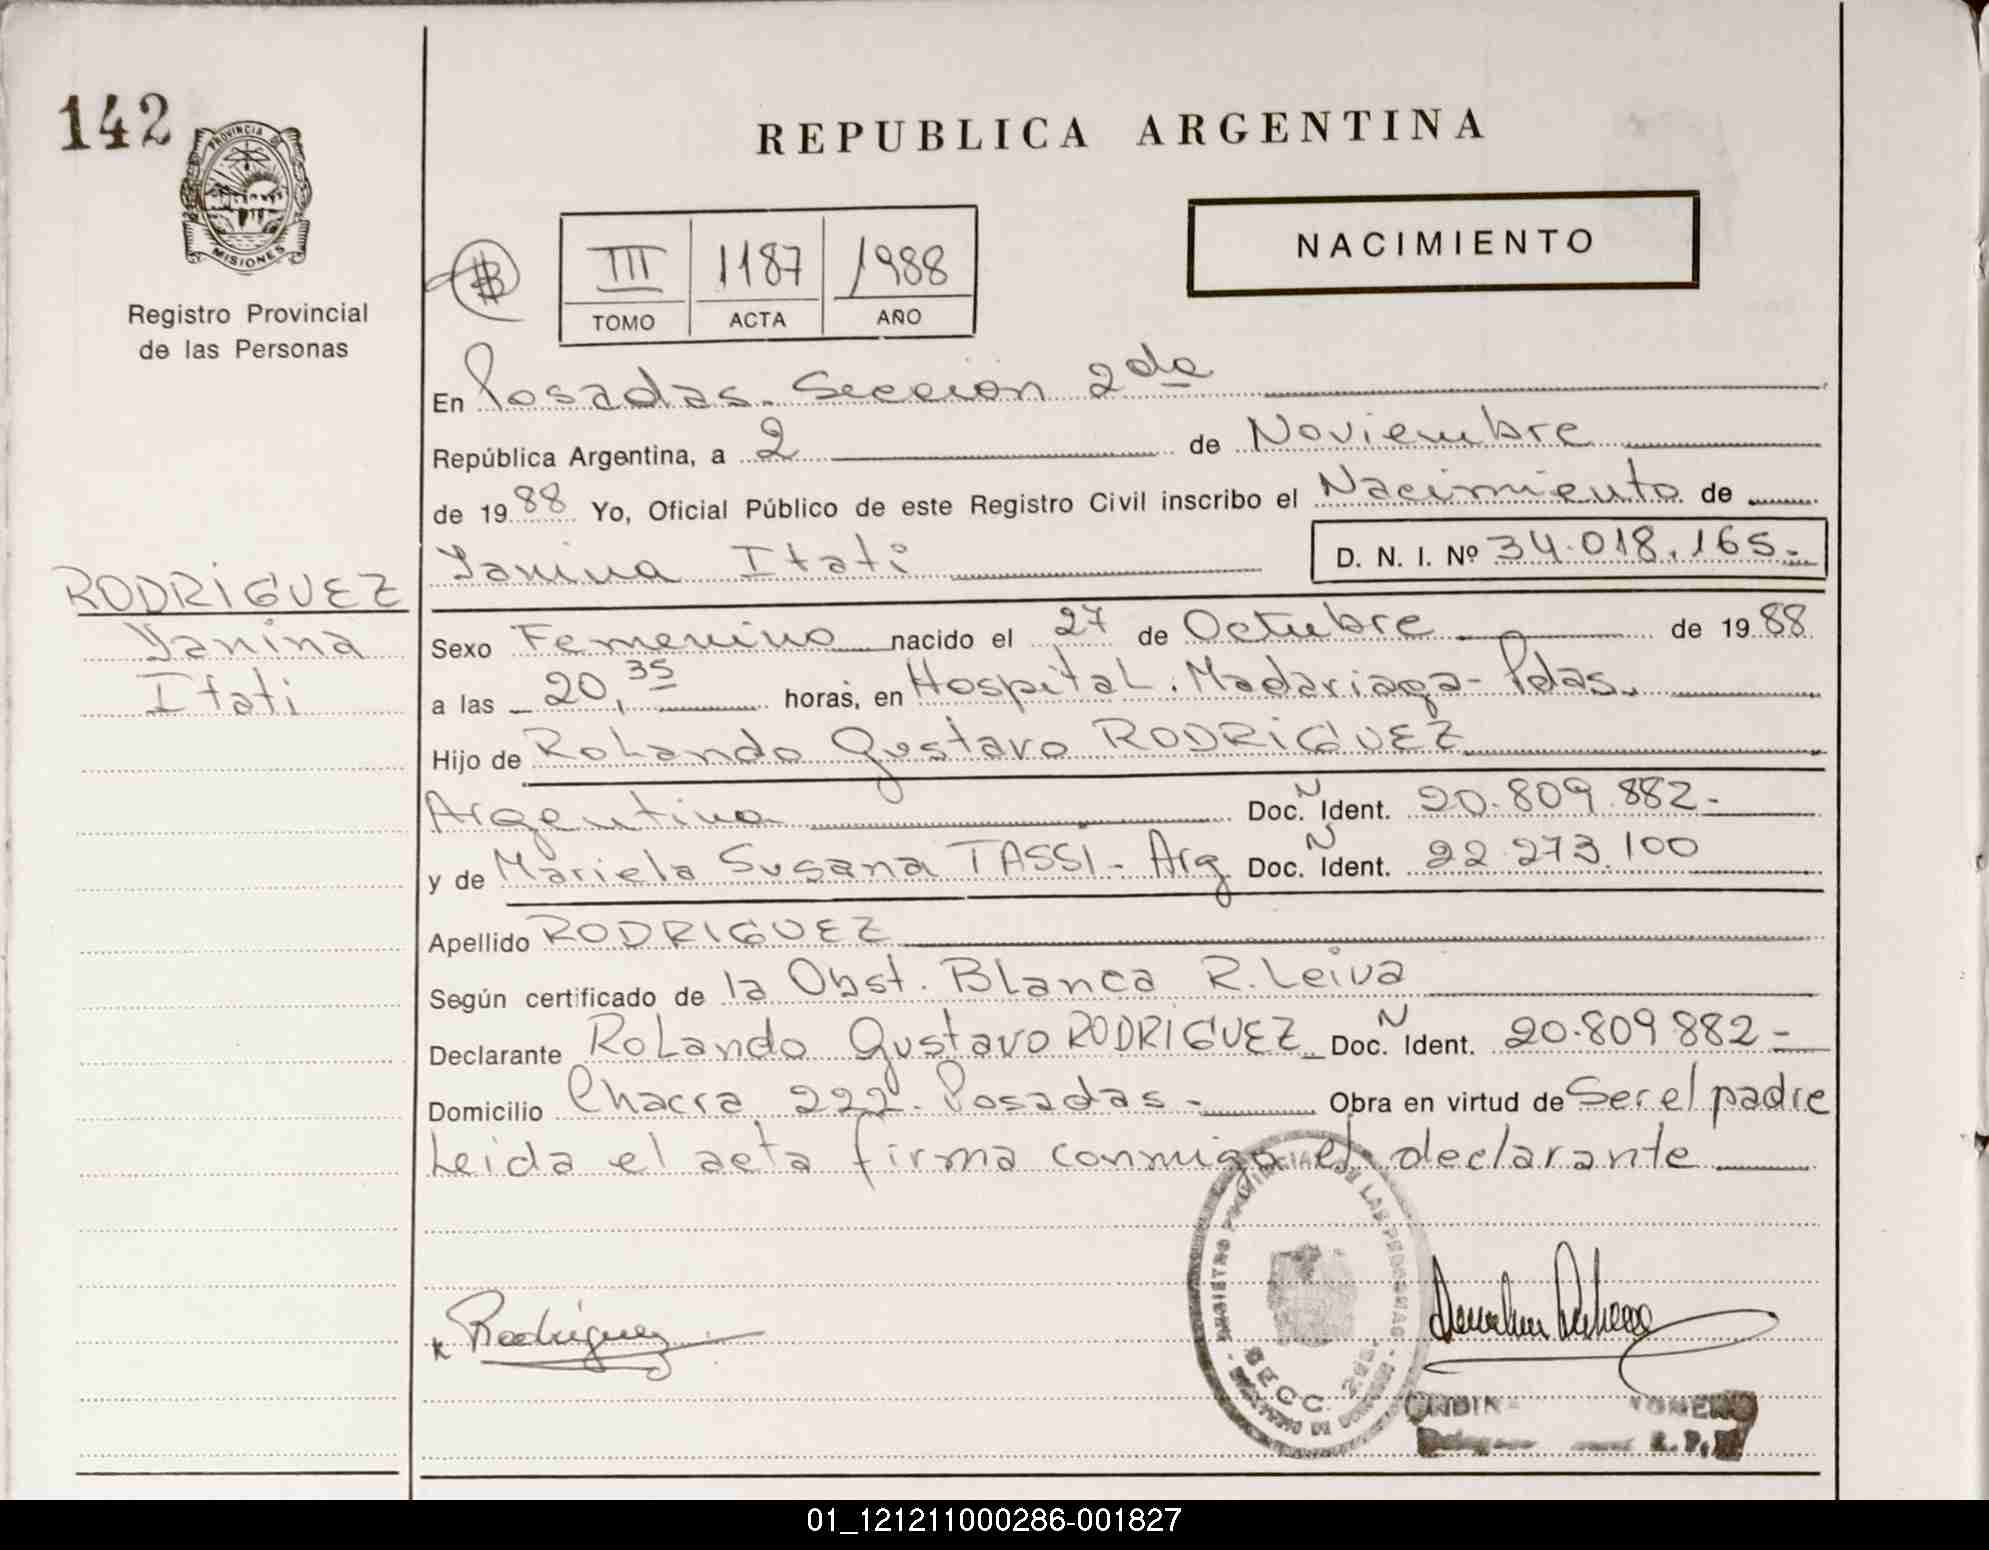 142
PROVINCIA DE
MISIONES
Registro Provincial
de las Personas
REPUBLICA ARGENTINA
NACIMIENTO
III 1187 1988
TOMO ACTA AÑO
En Posadas. Sección 2da
República Argentina, a 2 de Noviembre
de 1988 Yo, Oficial Público de este Registro Civil inscribo el Nacimiento de
Yanina Itati D. N. I. Nº 34.018.165.-
RODRIGUEZ
Yanina
Itati
Sexo Femenino nacido el 27 de Octubre de 1988
a las 20,35 horas, en Hospital. Madariaga - Pdas.
Hijo de Rolando Gustavo RODRIGUEZ
Argentino Doc. N Ident. 20.809.882-
y de Mariela Susana TASSI - Arg Doc. N Ident. 22.273.100
Apellido RODRIGUEZ
Según certificado de la Obst. Blanca R. Leiva
Declarante Rolando Gustavo RODRIGUEZ Doc. N Ident. 20.809882-
Domicilio Chacra 222. Posadas - Obra en virtud de Ser el padre
Leida el acta firma conmigo el declarante
REGISTRO PROVINCIAL DE LAS PERSONAS
SECC. 2da
Rodriguez
01_121211000286-001827